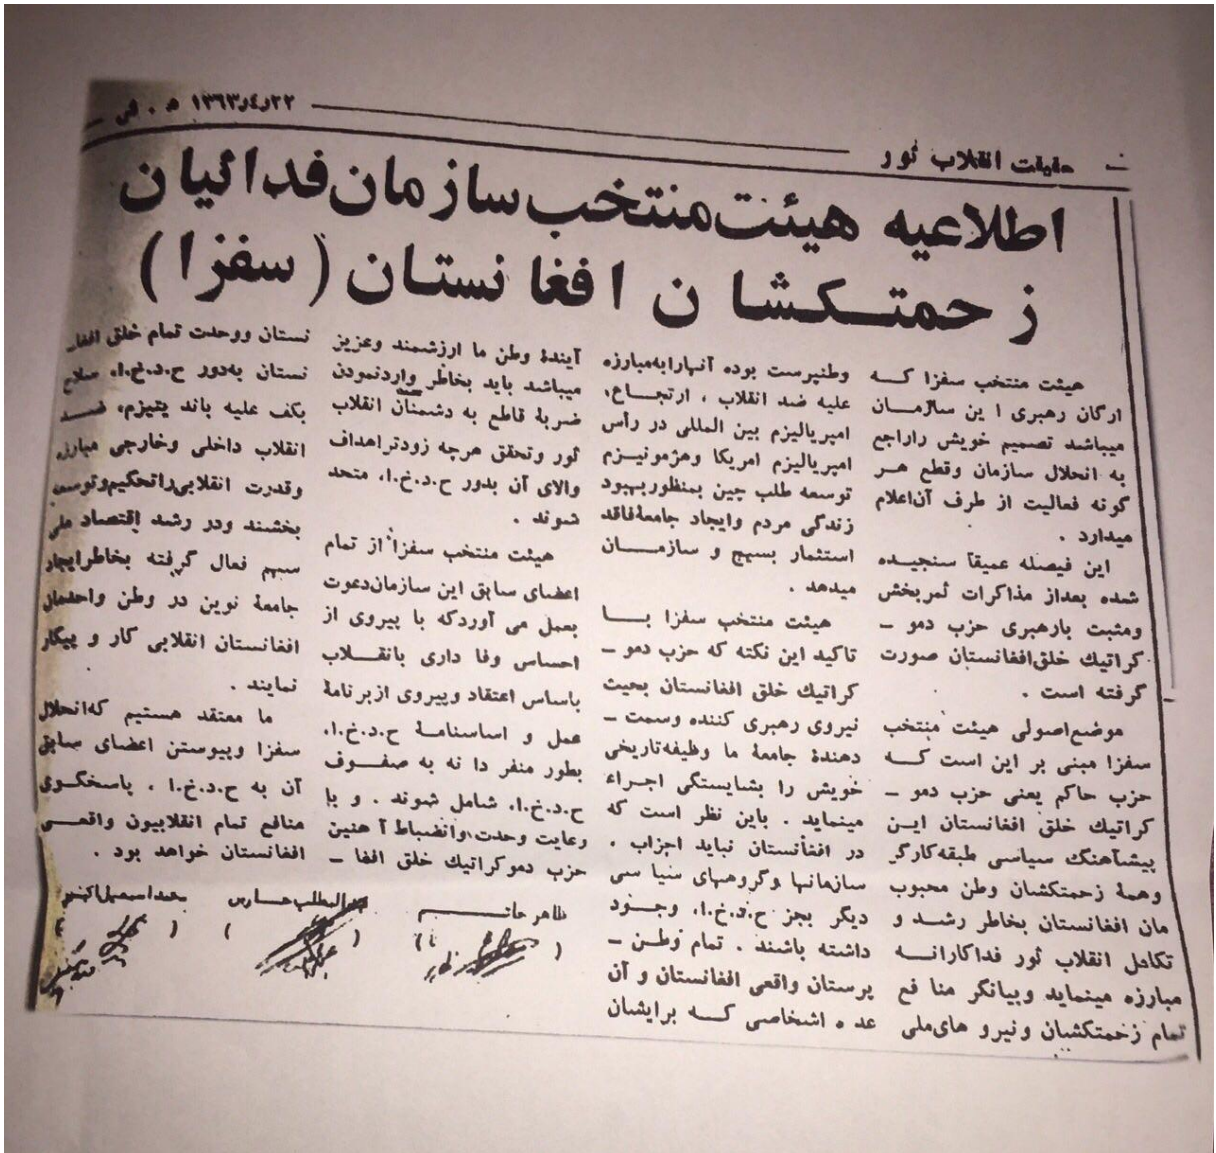 حقیقت انقلاب ثور
۲۲ر۴ر۱۳۶۳ هـ. ش
اطلاعیه هیئت منتخب سازمان فدائیان
زحمتکشان افغانستان (سفزا)
هیئت منتخب سفزا که
ارگان رهبری این سازمان
میباشد تصمیم خویش راراجع
به انحلال سازمان وقطع هر
گونه فعالیت از طرف آن‌اعلام
میدارد .
این فیصله عمیقاً سنجیده
شده بعداز مذاکرات ثمربخش
ومثبت بارهبری حزب دمو -
کراتیک خلق‌افغانستان صورت
گرفته است .
موضع‌اصولی هیئت منتخب
سفزا مبنی بر این است که
حزب حاکم یعنی حزب دمو -
کراتیک خلق افغانستان این
پیشآهنگ سیاسی طبقه‌کارگر
وهمهٔ زحمتکشان وطن محبوب
مان افغانستان بخاطر رشد و
تکامل انقلاب ثور فداکارانه
مبارزه مینماید وبیانگر منا فع
تمام زحمتکشان ونیرو های‌ملی
وطنپرست بوده آنهارابه‌مبارزه
علیه ضد انقلاب ، ارتجاع،
امپریالیزم بین المللی در رأس
امپریالیزم امریکا وهژمونیزم
توسعه طلب چین بمنظوربهبود
زندگی مردم وایجاد جامعهٔ‌فاقد
استثمار بسیج و سازمان
میدهد .
هیئت منتخب سفزا با
تاکید این نکته که حزب دمو -
کراتیک خلق افغانستان بحیث
نیروی رهبری کننده وسمت -
دهندهٔ جامعهٔ ما وظیفه‌تاریخی
خویش را بشایستگی اجراء
مینماید . باین نظر است که
در افغانستان نباید احزاب ،
سازمانها وگروههای سیا سی
دیگر بجز ح.د.خ.ا. وجود
داشته باشند . تمام وطن -
پرستان واقعی افغانستان و آن
عده اشخاصی که برایشان
آیندهٔ وطن ما ارزشمند وعزیز
میباشد باید بخاطر واردنمودن
ضربهٔ قاطع به دشمنان انقلاب
ثور وتحقق هرچه زودتراهداف
والای آن بدور ح.د.خ.ا. متحد
شوند .
هیئت منتخب سفزا از تمام
اعضای سابق این سازمان‌دعوت
بعمل می آوردکه با پیروی از
احساس وفا داری بانقلاب
باساس اعتقاد وپیروی ازبرنامهٔ
عمل و اساسنامهٔ ح.د.خ.ا.
بطور منفر دا نه به صفوف
ح.د.خ.ا. شامل شوند . و با
رعایت وحدت،وانضباط آ هنین
حزب دموکراتیک خلق افغا -
نستان ووحدت تمام خلق افغا-
نستان به‌دور ح.د.خ.ا. سلاح
بکف علیه باند یتیزم، ضد
انقلاب داخلی وخارجی مبارزه
وقدرت انقلابی‌راتحکیم‌وتوسعه
بخشند ودر رشد اقتصاد ملی
سهم فعال گرفته بخاطرایجاد
جامعهٔ نوین در وطن واحدمان
افغانستان انقلابی کار و پیکار
نمایند .
ما معتقد هستیم که‌انحلال
سفزا وپیوستن اعضای سابق
آن به ح.د.خ.ا . پاسخگوی
منافع تمام انقلابیون واقعی
افغانستان خواهد بود .
ظاهر حاتم
عبدالمطلب حارس
محمد اسمعیل اکبر